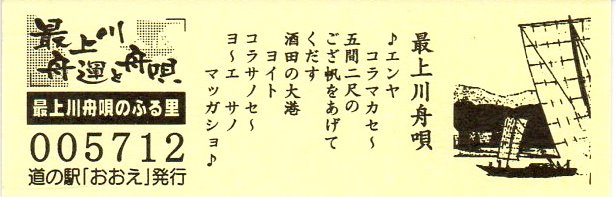 最上川
舟運と舟唄
最上川舟唄のふる里
005712
道の駅「おおえ」発行
最上川舟唄
♪エンヤ
コラマカセ～
五間二尺の
ござ帆をあげて
くだす
酒田の大港
ヨイト
コラサノセ～
ヨ～エ サノ
マッガショ♪